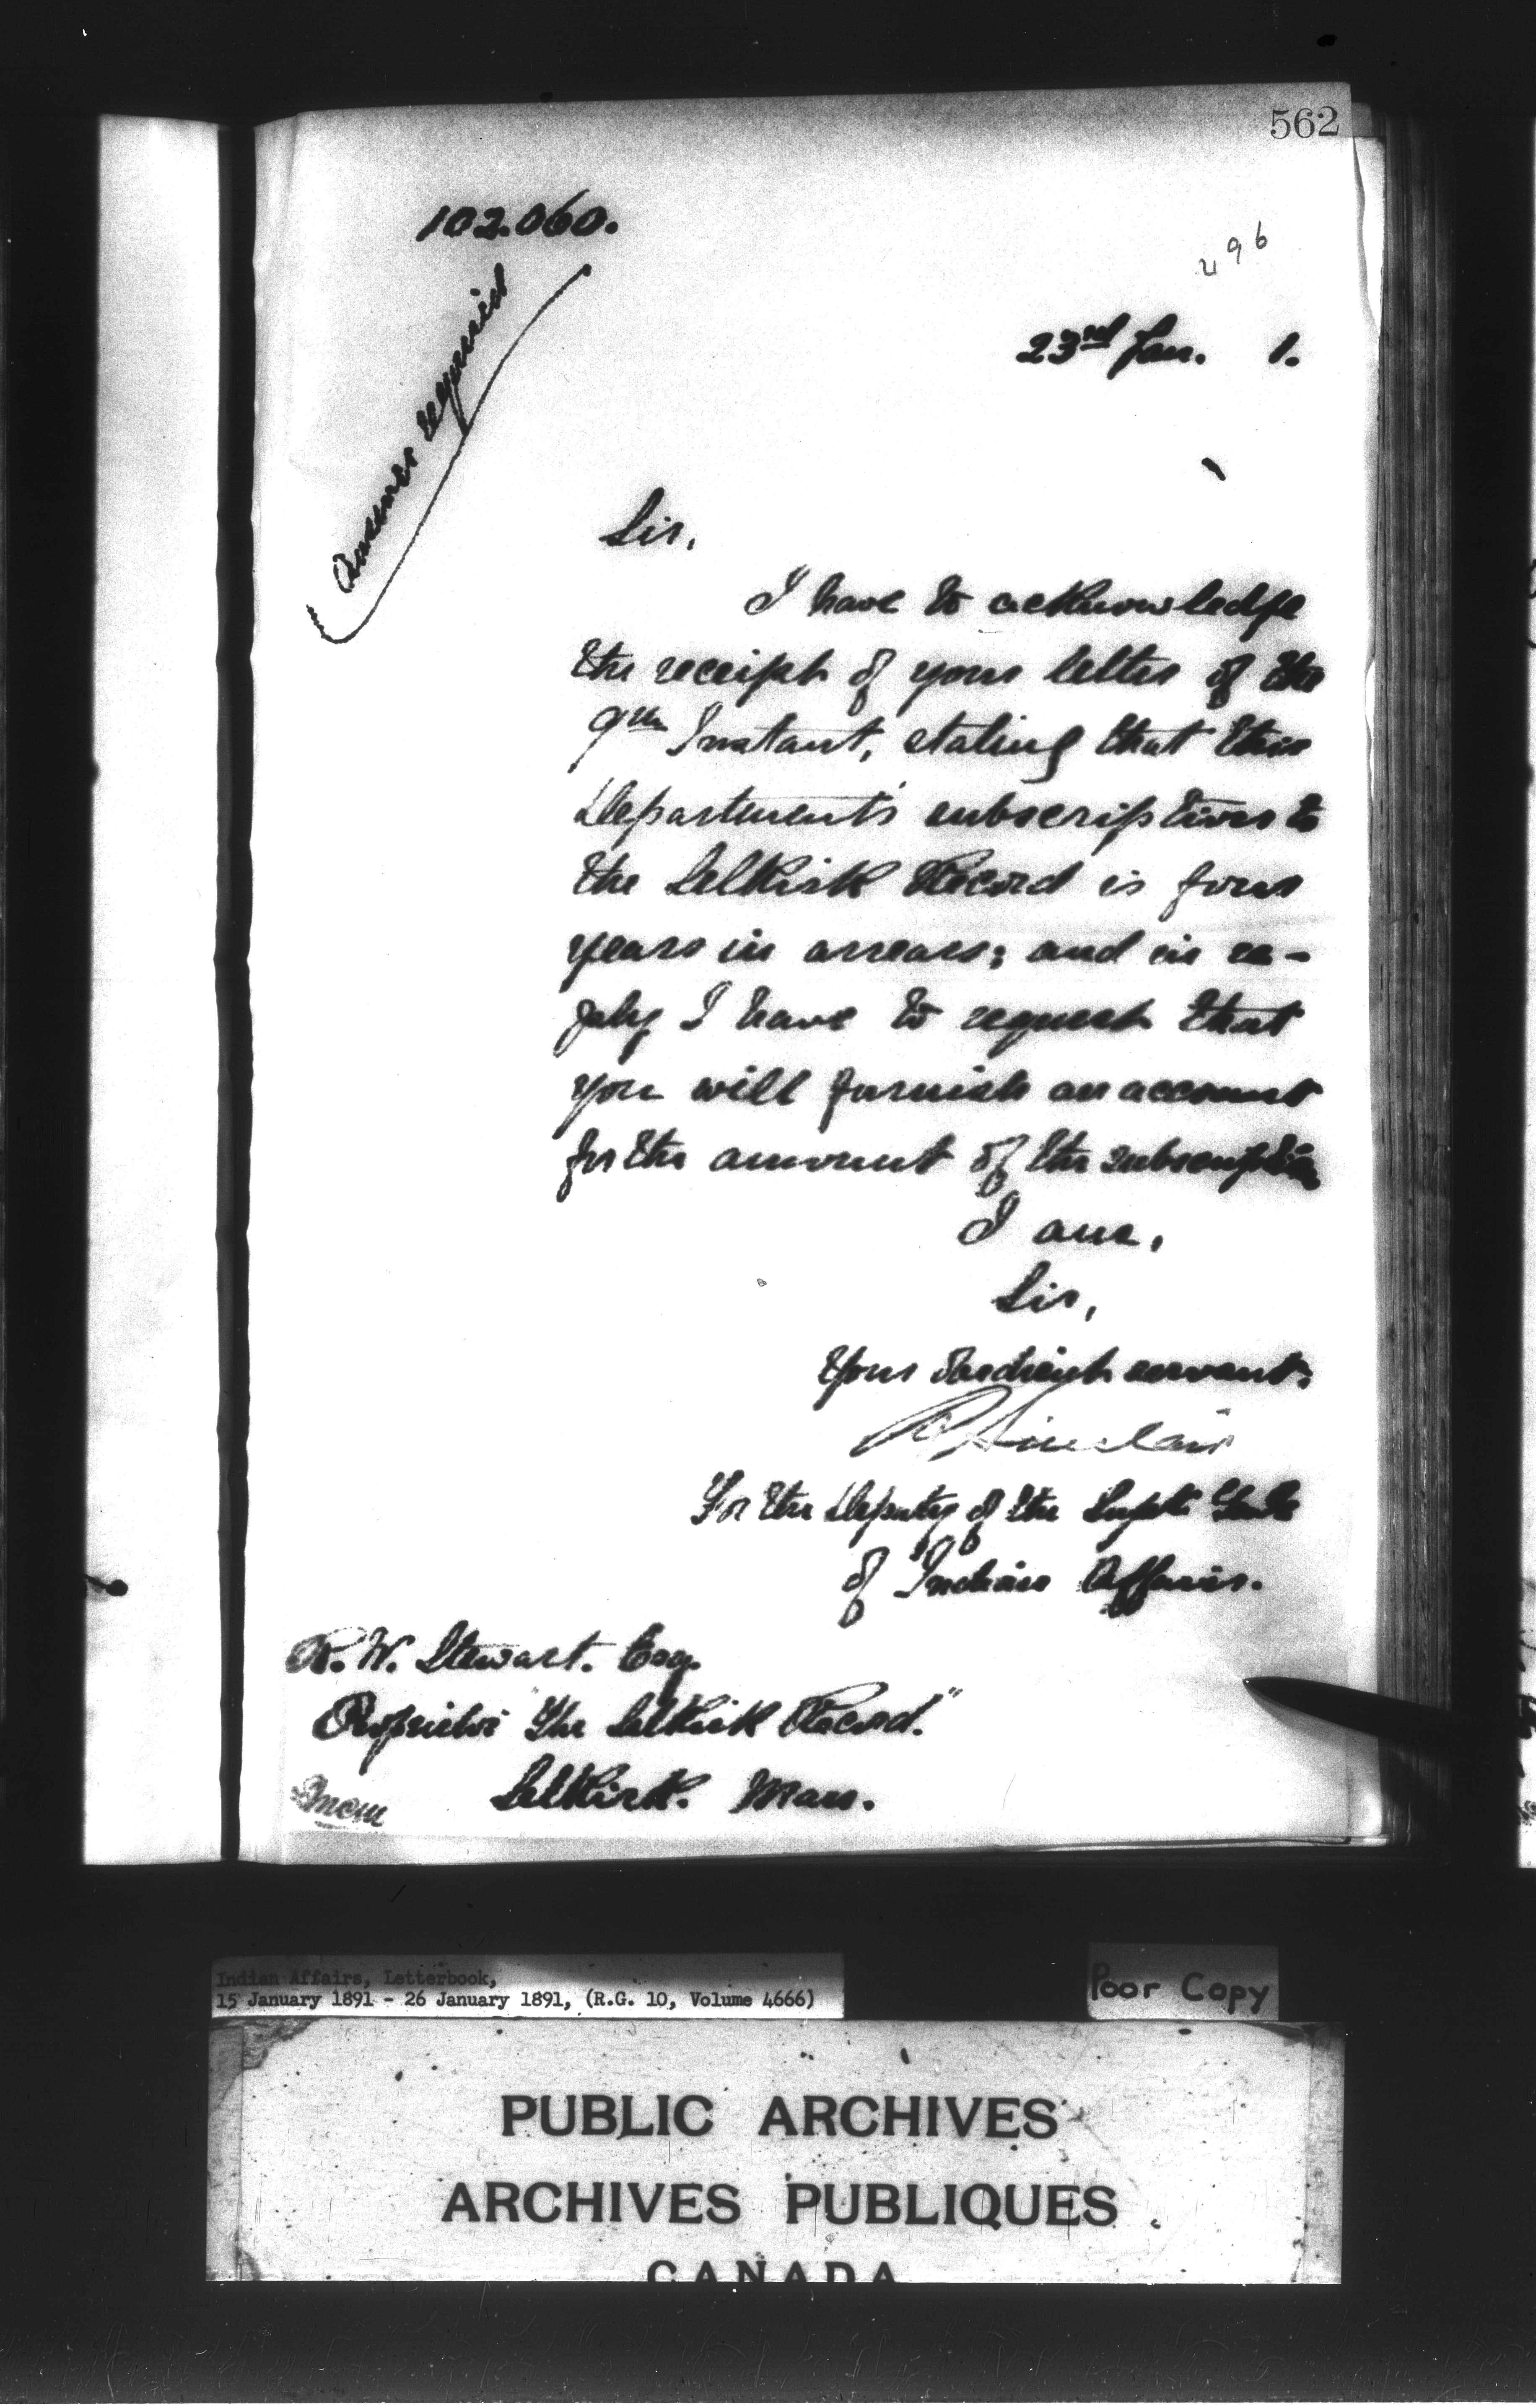 562
102.060.
496
Answer required
23rd Jan. 1.
Sir,
I have to acknowledge
the receipt of your letter of the
9th Instant, stating that this
Department's subscription to
the Selkirk Record is four
years in arrears; and in re-
ply I have to request that
you will furnish an account
for the amount of the subscription
I am,
Sir,
Your obedient servant,
R Sinclair
For the Deputy of the Supt. Genl.
of Indian Affairs.
R. W. Stewart. Esq.
Proprietor "The Selkirk Record."
Selkirk. Man.
Indian Affairs, Letterbook,
15 January 1891 - 26 January 1891, (R.G. 10, Volume 4666)
Poor Copy
PUBLIC ARCHIVES
ARCHIVES PUBLIQUES
CANADA